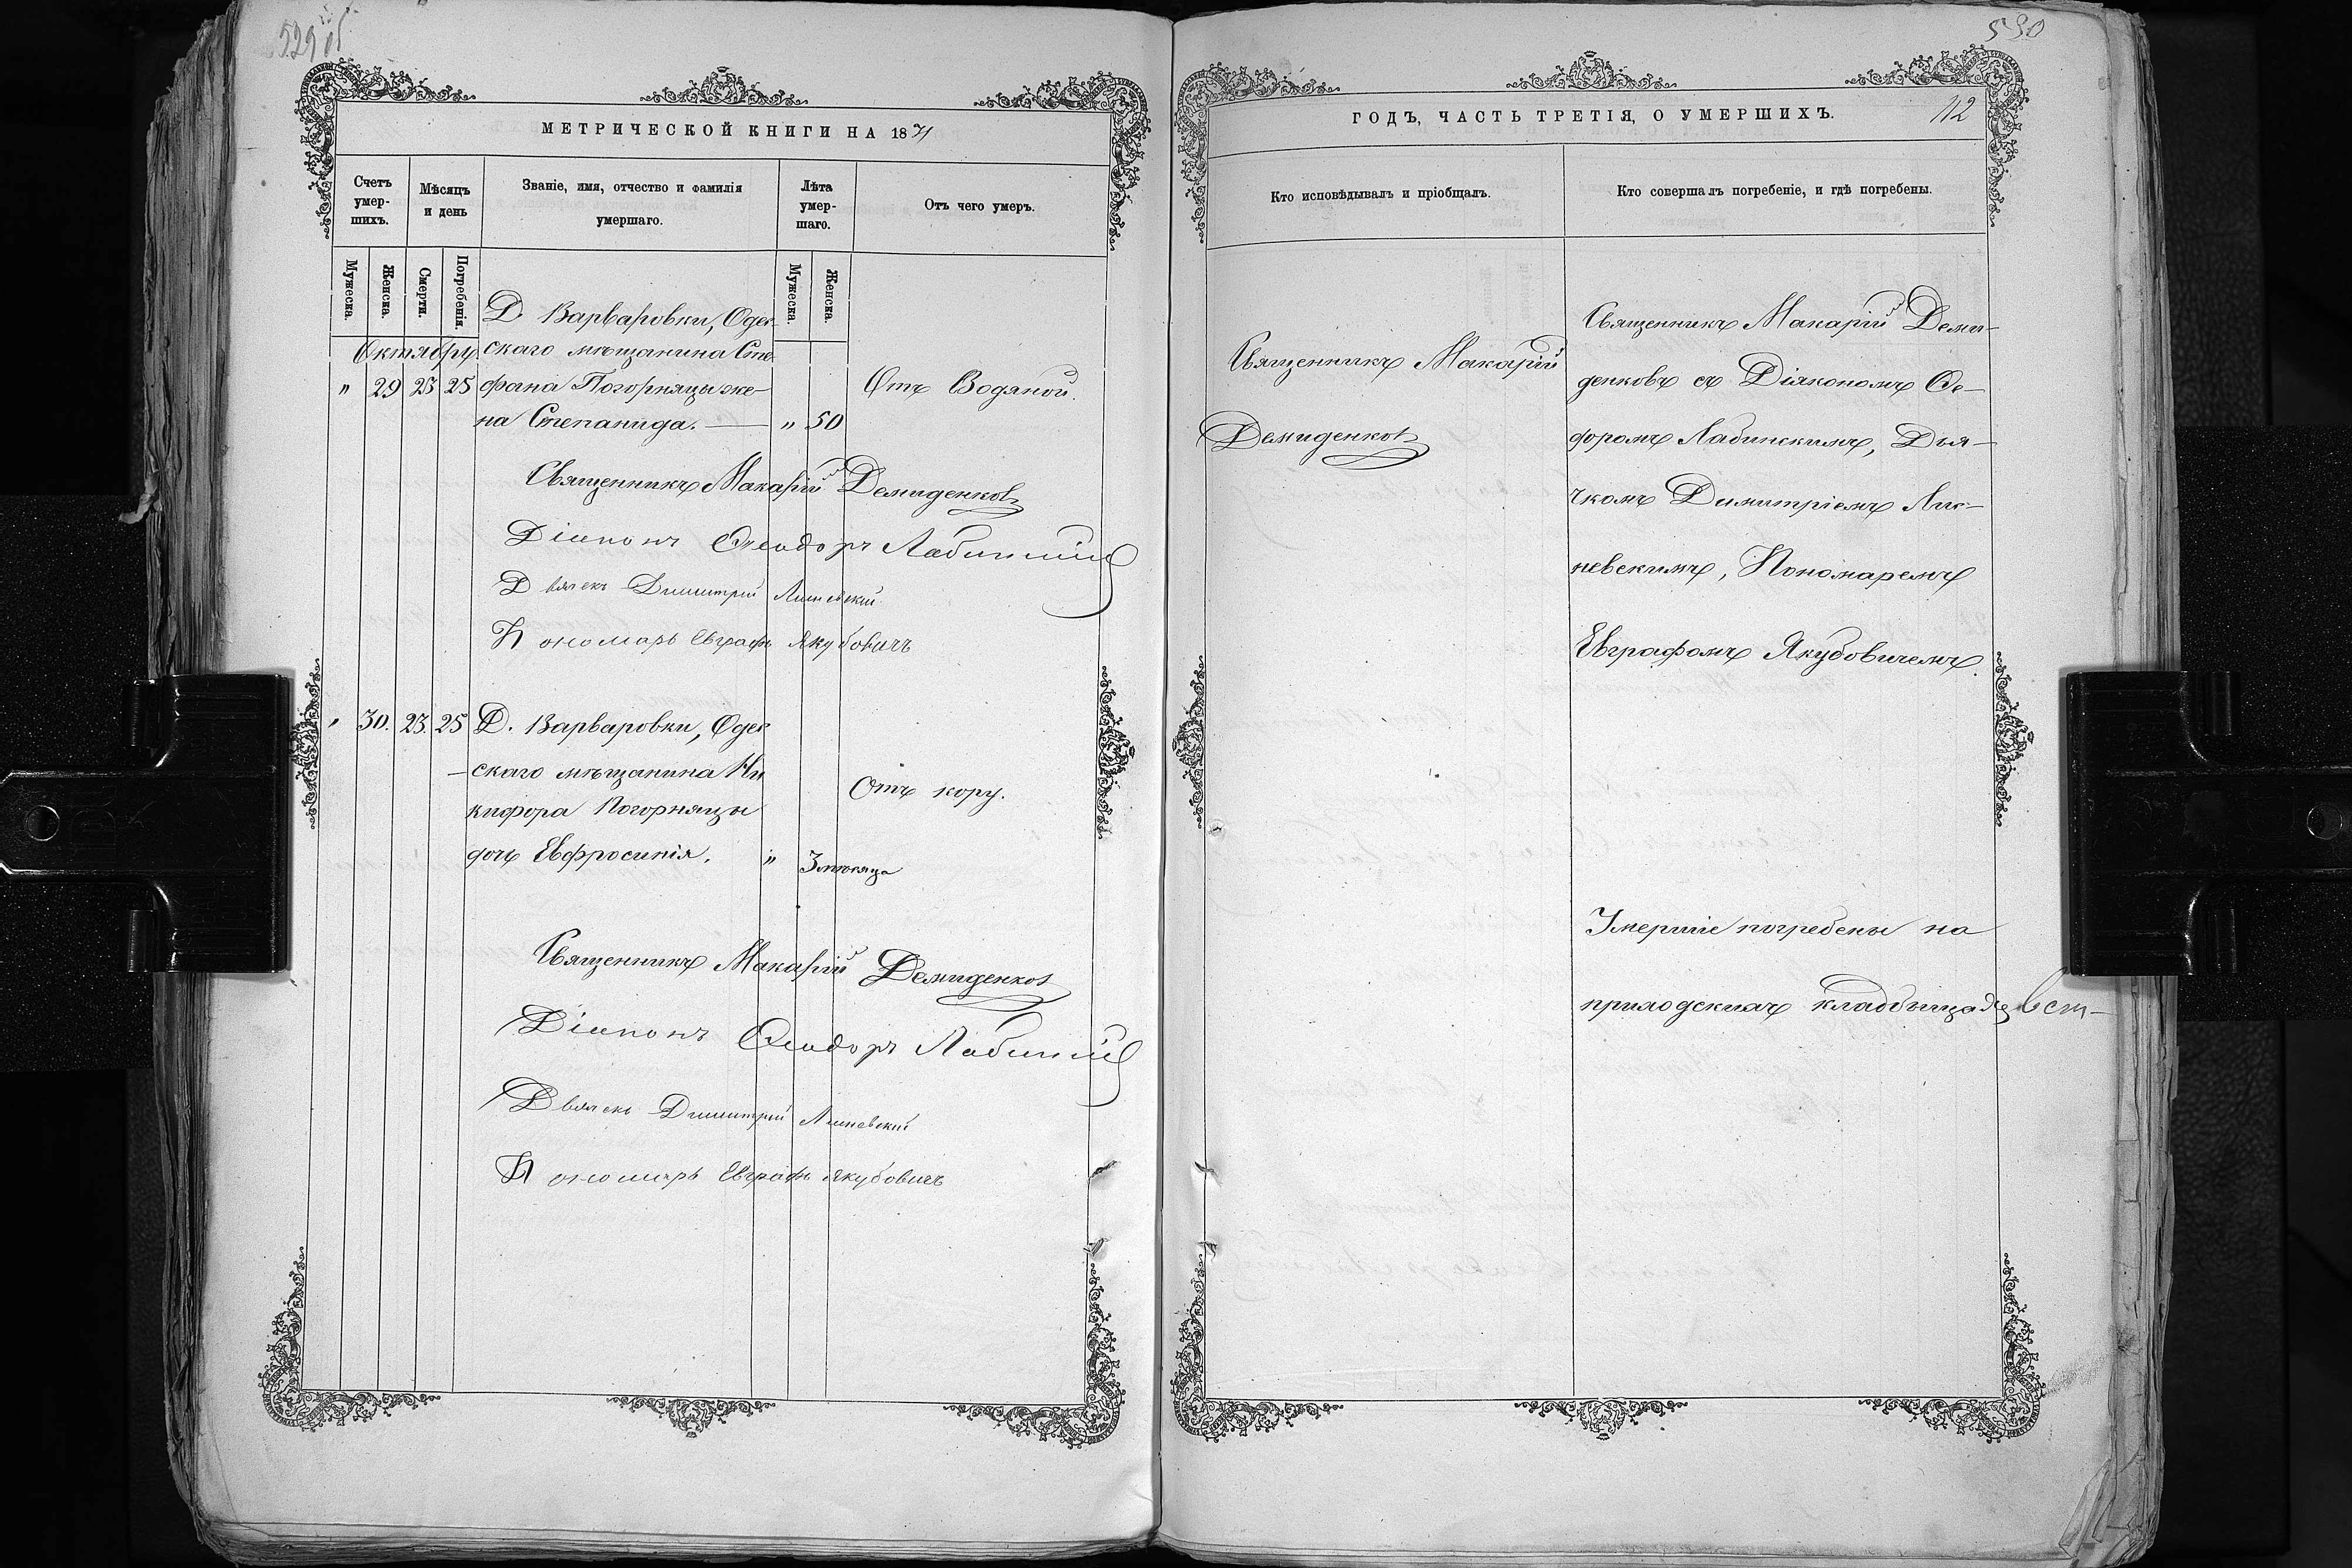 529 об.
МЕТРИЧЕСКОЙ КНИГИ НА 1871
Счетъ умер-шихъ.
Мѣсяцъ и день
Званіе, имя, отчество и фамилія умершаго.
Лѣта умер-шаго.
Отъ чего умеръ.
Мужеска.
Женска.
Смерти.
Погребенія.
Мужеска.
Женска.
Д. Варваровки, Одес-
Октябрь. скаго мѣщанина Сте-
" 29 23 25 фана Погорняцы же- Отъ Водяной.
на Степанида. — " 50
Священникъ Макарій Демиденковъ
Діаконъ Ѳеодоръ Лабинскій
Дьячекъ Димитрій Лисневскій
Пономарь Евграфъ Якубовичъ
" 30. 23. 25 Д. Варваровки, Одес
-скаго мѣщанина Ни
кифора Погорняцы Отъ кору.
дочь Евфросинія. " 3 мѣсяца
Священникъ Макарій Демиденковъ
Діаконъ Ѳеодоръ Лабинскій
Дьячекъ Димитрій Лисневскій
Пономарь Евграфъ Якубовичъ
530
ГОДЪ, ЧАСТЬ ТРЕТІЯ, О УМЕРШИХЪ.
112
Кто исповѣдывалъ и пріобщалъ.
Кто совершалъ погребеніе, и гдѣ погребены.
Священникъ Макарій
Демиденковъ
Священникъ Макарій Деми-
денковъ съ Діякономъ Ѳе-
доромъ Лабинскимъ, Дья-
чкомъ Димитріемъ Лис-
невскимъ, Пономаремъ
Евграфомъ Якубовичемъ.
Умершіе погребены на
приходскихъ кладбищахъ